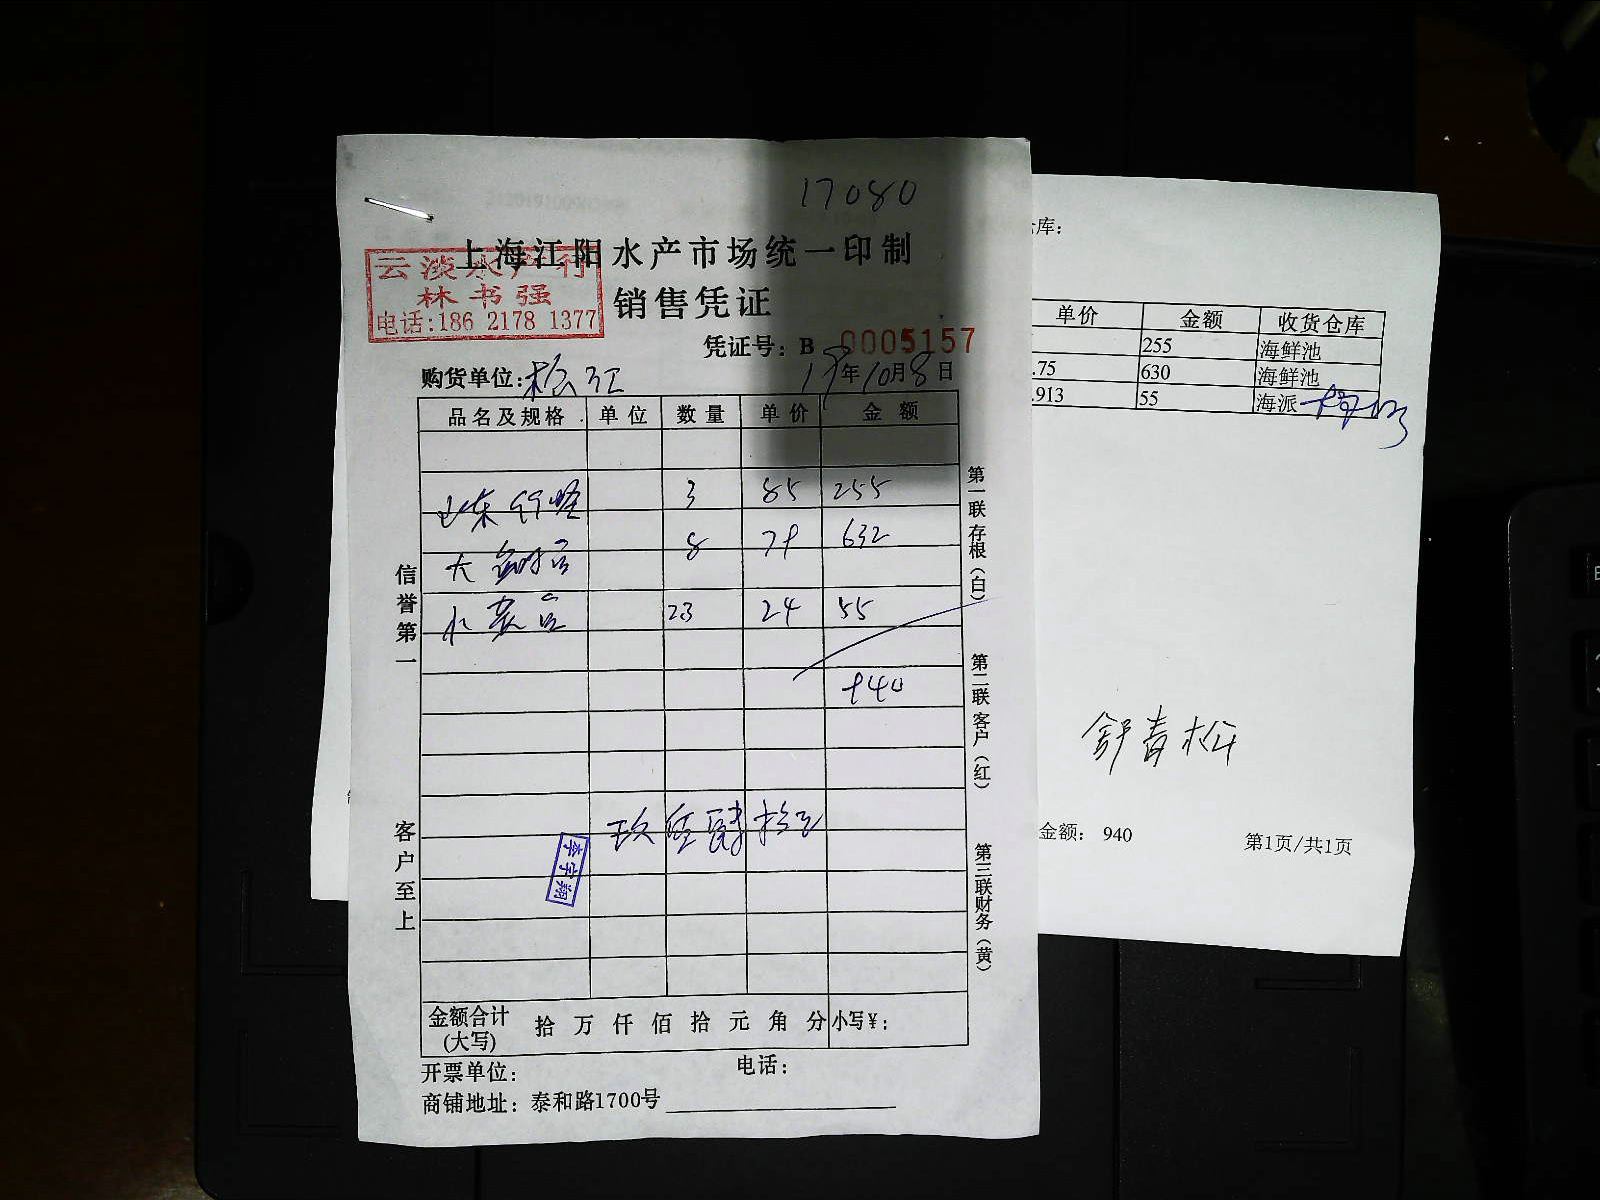 17080
上海江阳水产市场统一印制
云淡水产行
林书强
电话:186 2178 1377
销售凭证
凭证号: B 0005157
购货单位:松江 19年10月8日
品名及规格 单位 数量 单价 金额
山东 3 85 255
大 8 79 632
23 24 55
940
玖佰肆拾元
李宇翔
金额合计(大写) 拾 万 仟 佰 拾 元 角 分 小写¥:
开票单位: 电话:
商铺地址: 泰和路1700号
信誉第一
客户至上
第一联存根(白)
第二联客户(红)
第三联财务(黄)
库:
单价 金额 收货仓库
255 海鲜池
.75 630 海鲜池
.913 55 海派
舒青松
金额: 940 第1页/共1页